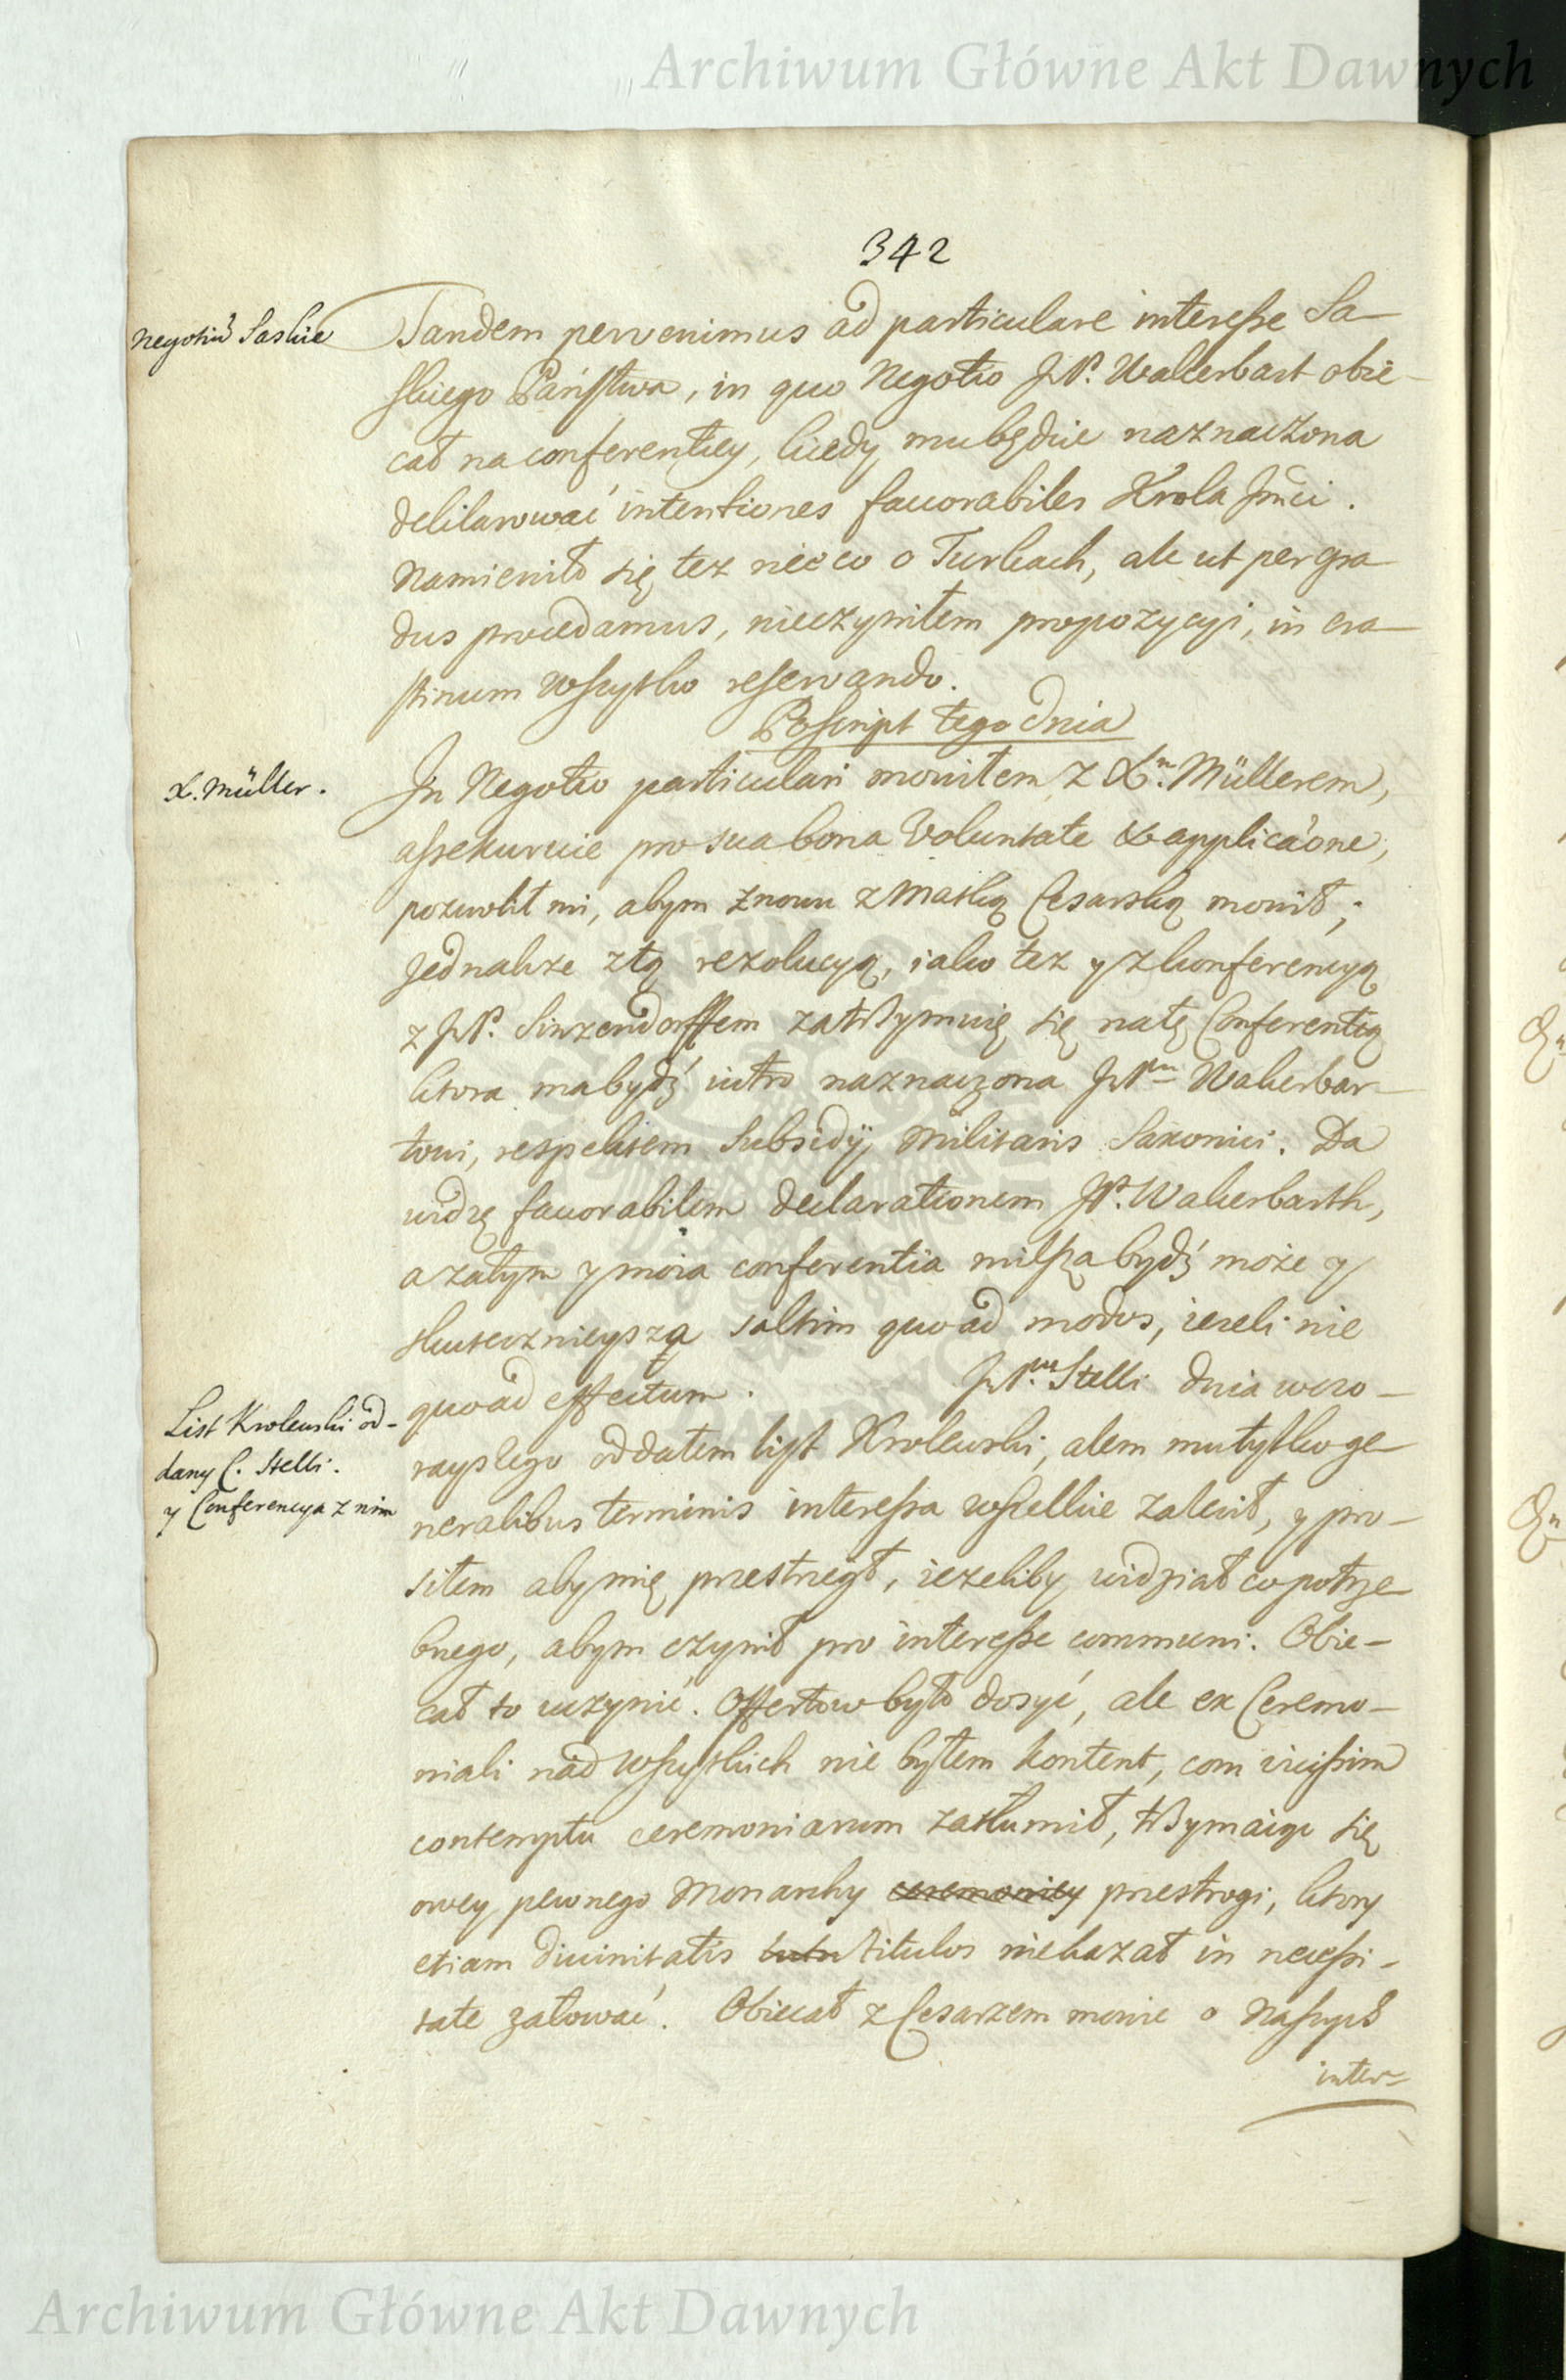 Archiwum Główne Akt Dawnych
342
Negotiũ Saskie
Tandem pervenimus ad particulare interesse Sa-
skiego Państwa, in quo Negotio JP. Wakerbart obie-
cał na conferentiey, kiedy mu będzie naznaczona
deklarować intentiones favorabiles Krola Jmci.
Namienił się tez nieco o Turkach, ale ut per gra-
dus procedamus, nieczyniłem propozycyi, in cra-
stinum wszytko reservando.
Postcript tego dnia
X. Müller.
In Negotio particulari moniłem z Xm. Müllerem,
assekuruie pro sua bona voluntate & applicaõne,
pozwolił mi, abym znowu z Matką Cesarską monił;
jednakze z tą rezolucyą, iako tez y z konferencyą
z JP. Sinzendorffem zatrzymuię się na tę Conferentią
ktora ma bydź iutro naznaczona JPm Wakerbar-
towi, respektem Subsidÿ Militaris Saxonici. Da
widzę favorabilem declarationem JP. Wakerbarth,
a zatym y moia conferentia milsza bydź może y
skutecznieysza saltim quoad modos, iezeli nie
quoad effectum. JPm. Stelli dnia wczo-
List Krolewski od-
dany C. Stelli.
y Conferencya z nim
rayszego oddałem list Krolewski, alem mu tylko ge-
neralibus terminis interessa wszelkie zalecił, y pro-
siłem aby mię przestrzegł, iezeliby widział co potrze-
bnego, abym czynił pro interesse communi. Obie-
cał to uczynić. Offertow było dosyć, ale ex Ceremo-
niali nad wszystkich nie byłem kontent, com vicissim
contemptu ceremoniarum zatłumił, trzymaiąc się
owey pewnego Monarchy ceremoniey przestrogi, ktory
etiam divinitatis titulos niekazał in necessi-
tate załować. Obiecał z Cesarzem monić o Naszych
inter-
Archiwum Główne Akt Dawnych